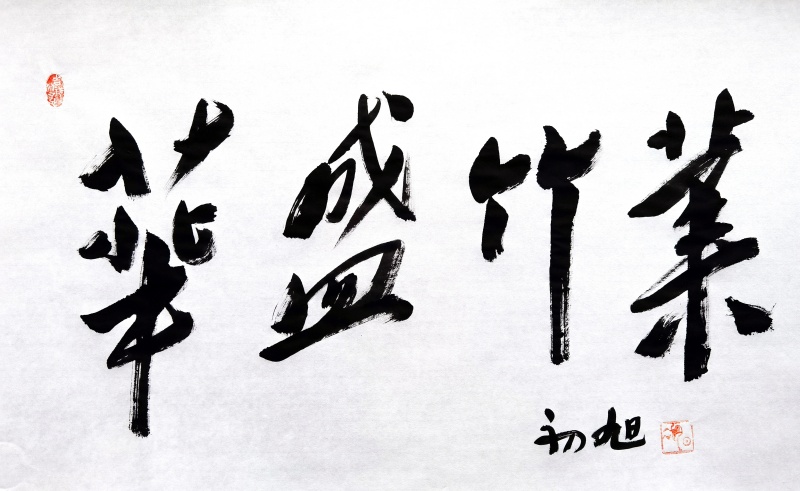 華盛竹業
初旭